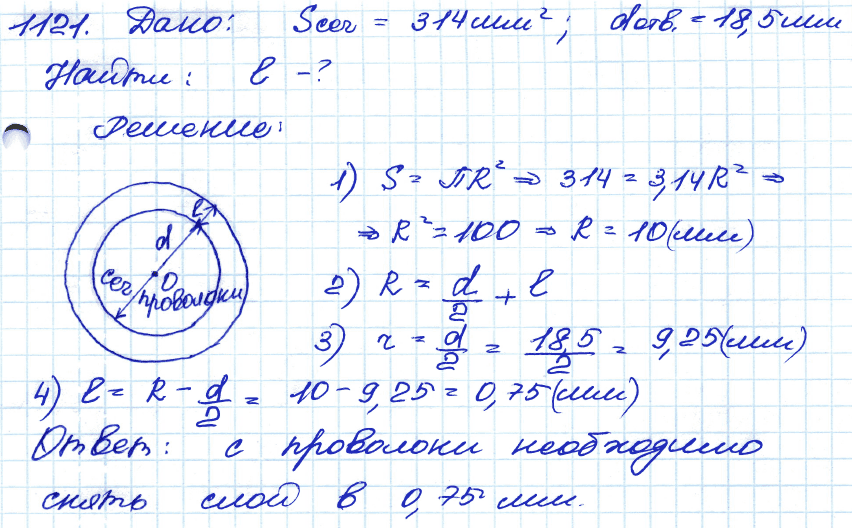 1121. Дано: Sсеч = 314мм²; dотв. = 18,5мм
Найти: ℓ - ?
Решение:
1) S = ПR² ⇒ 314 = 3,14R² ⇒
⇒ R² = 100 ⇒ R = 10(мм)
ℓ
d
O
сеч
проволоки
2) R = d/2 + ℓ
3) r = d/2 = 18,5/2 = 9,25(мм)
4) ℓ = R - d/2 = 10 - 9,25 = 0,75(мм)
Ответ: с проволоки необходимо
снять слой в 0,75 мм.